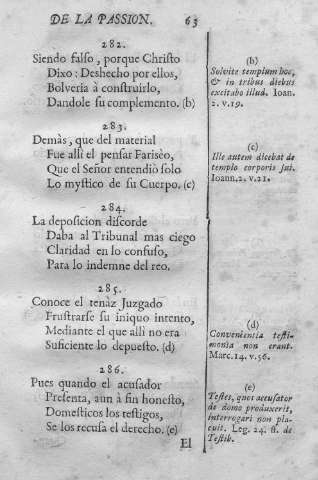 DE LA PASSION. 63
282.
Siendo falſo, porque Chriſto
Dixo: Deshecho por ellos,
Bolveria à conſtruirlo,
Dandole ſu complemento. (b)
283.
Demàs, que del material
Fue alli el penſar Fariſèo,
Que el Señor entendiò ſolo
Lo myſtico de ſu Cuerpo. (c)
284.
La depoſicion diſcorde
Daba al Tribunal mas ciego
Claridad en lo confuſo,
Para lo indemne del reo.
285.
Conoce el tenàz Juzgado
Fruſtrarſe ſu iniquo intento,
Mediante el que alli no era
Suficiente lo depueſto. (d)
286.
Pues quando el acuſador
Preſenta, aun à fin honeſto,
Domeſticos los teſtigos,
Se los recuſa el derecho. (e)
El
(b)
Solvite templum hoc,
& in tribus diebus
excitabo illud. Ioan.
2. v.19.
(c)
Ille autem dicebat de
templo corporis ſui.
Ioann.2. v.21.
(d)
Convenientia teſti-
monia non erant.
Marc.14. v.56.
(e)
Teſtes, quos accuſator
de domo produxerit,
interrogari non pla-
cuit. Leg. 24. ff. de
Teſtib.